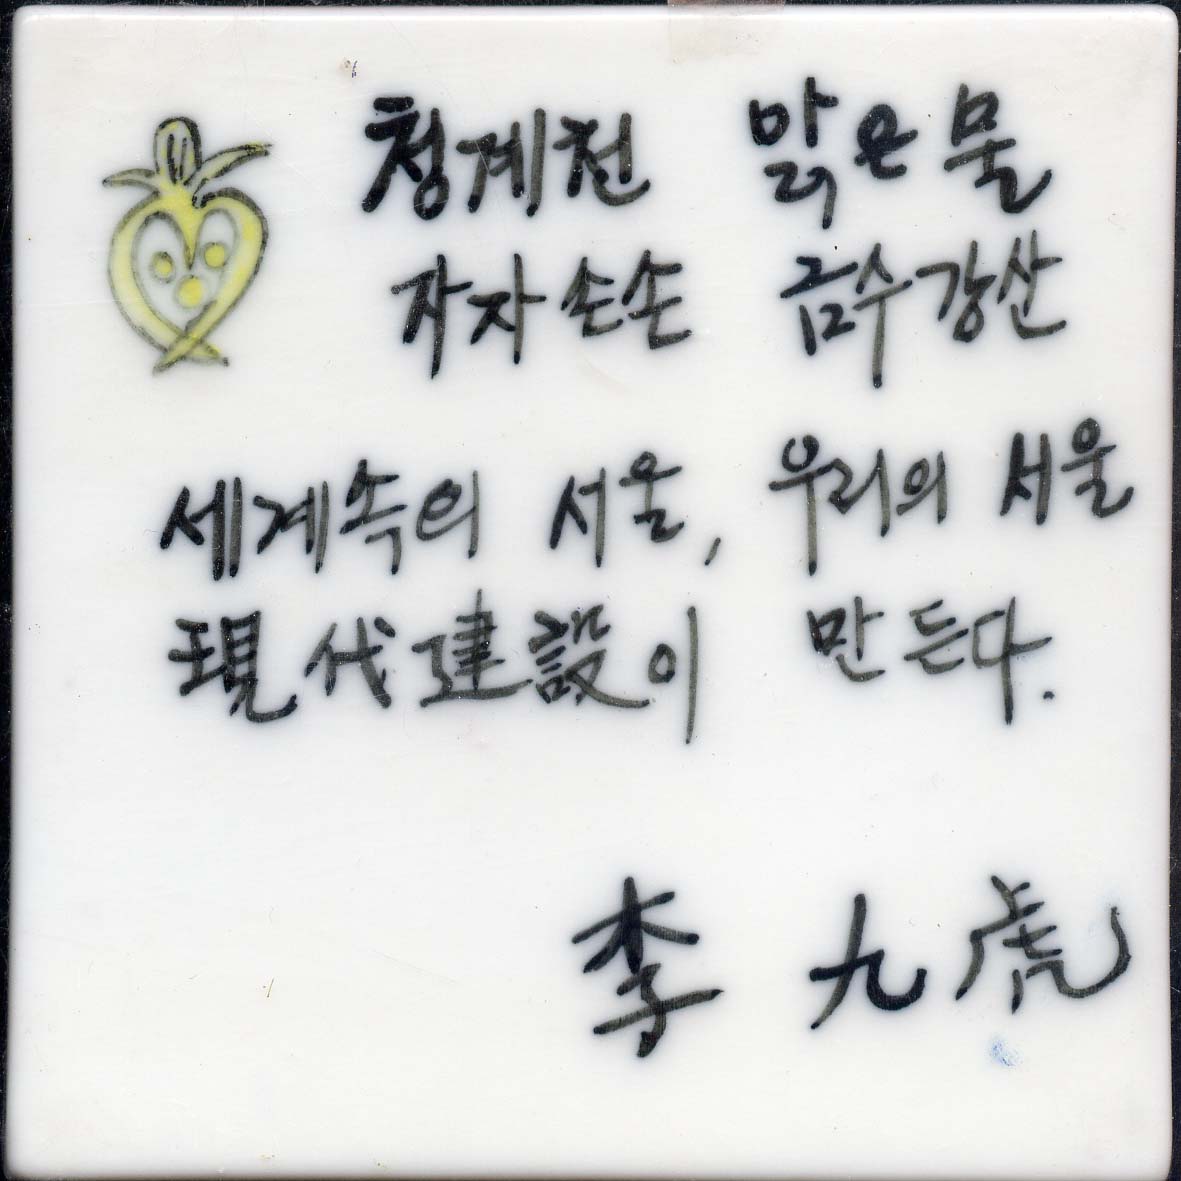 청계천 맑은 물
자자손손 금수강산
세계속의 서울, 우리의 서울
現代建設이 만든다.
李 九 虎